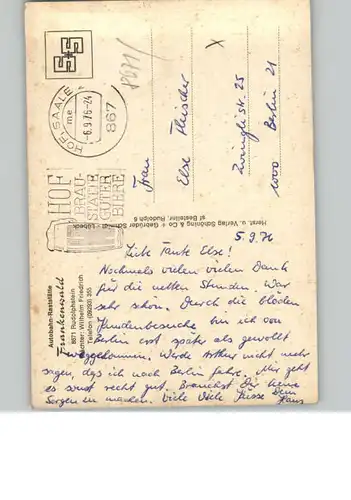 HOF, SAALE
me
-6.9.76-24
867
HOF
BRAU-
STÄTTE
GUTER
BIERE
Frau
Else Fleischer
Zwinglistr. 25
1000 Berlin 21
Herst. u. Verlag Schöning & Co + Gebrüder Schmidt - Lübeck
Bestellnr. Rudolph 6
Autobahn-Raststätte
Frankenwald
8671 Rudolphstein
Pächter: Wilhelm Friedrich
Telefon (09293) 355
5.9.76
Liebe Tante Else!
Nochmals vielen vielen Dank
für die netten Stunden. War
sehr schön. Durch die blöden
Kundenbesuche bin ich von
Berlin erst später als gewollt
weggekommen. Werde Arthur nicht mehr
sagen, daß ich nach Berlin fahre. Mir geht
es sonst recht gut. Brauchst Dir keine
Sorgen zu machen. Viele Viele Küsse Dein
Hans